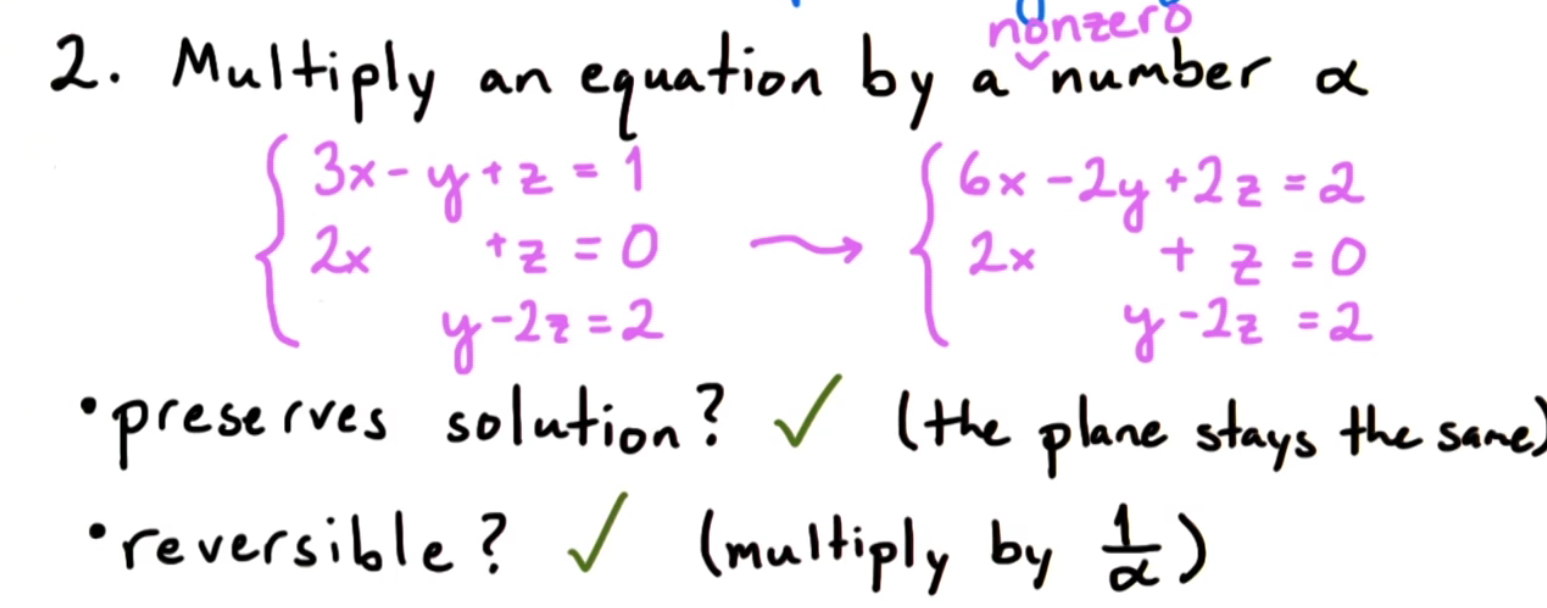 nonzero
2. Multiply an equation by a number α
3x - y + z = 1
2x + z = 0
y - 2z = 2
6x - 2y + 2z = 2
2x + z = 0
y - 2z = 2
• preserves solution? ✓ (the plane stays the same)
• reversible? ✓ (multiply by 1/α)